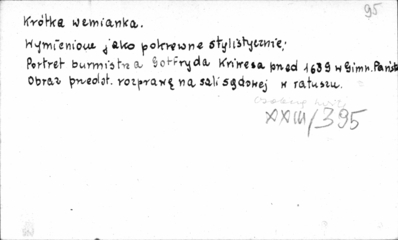 95
Krótka wzmianka.
Wymienione jako pokrewne stylistycznie:
Portret burmistrza Gotfryda Kniresa przed 1639 w Gimn. Państ
Obraz przedst. rozprawę na sali sądowej w ratuszu.
XXIII/395